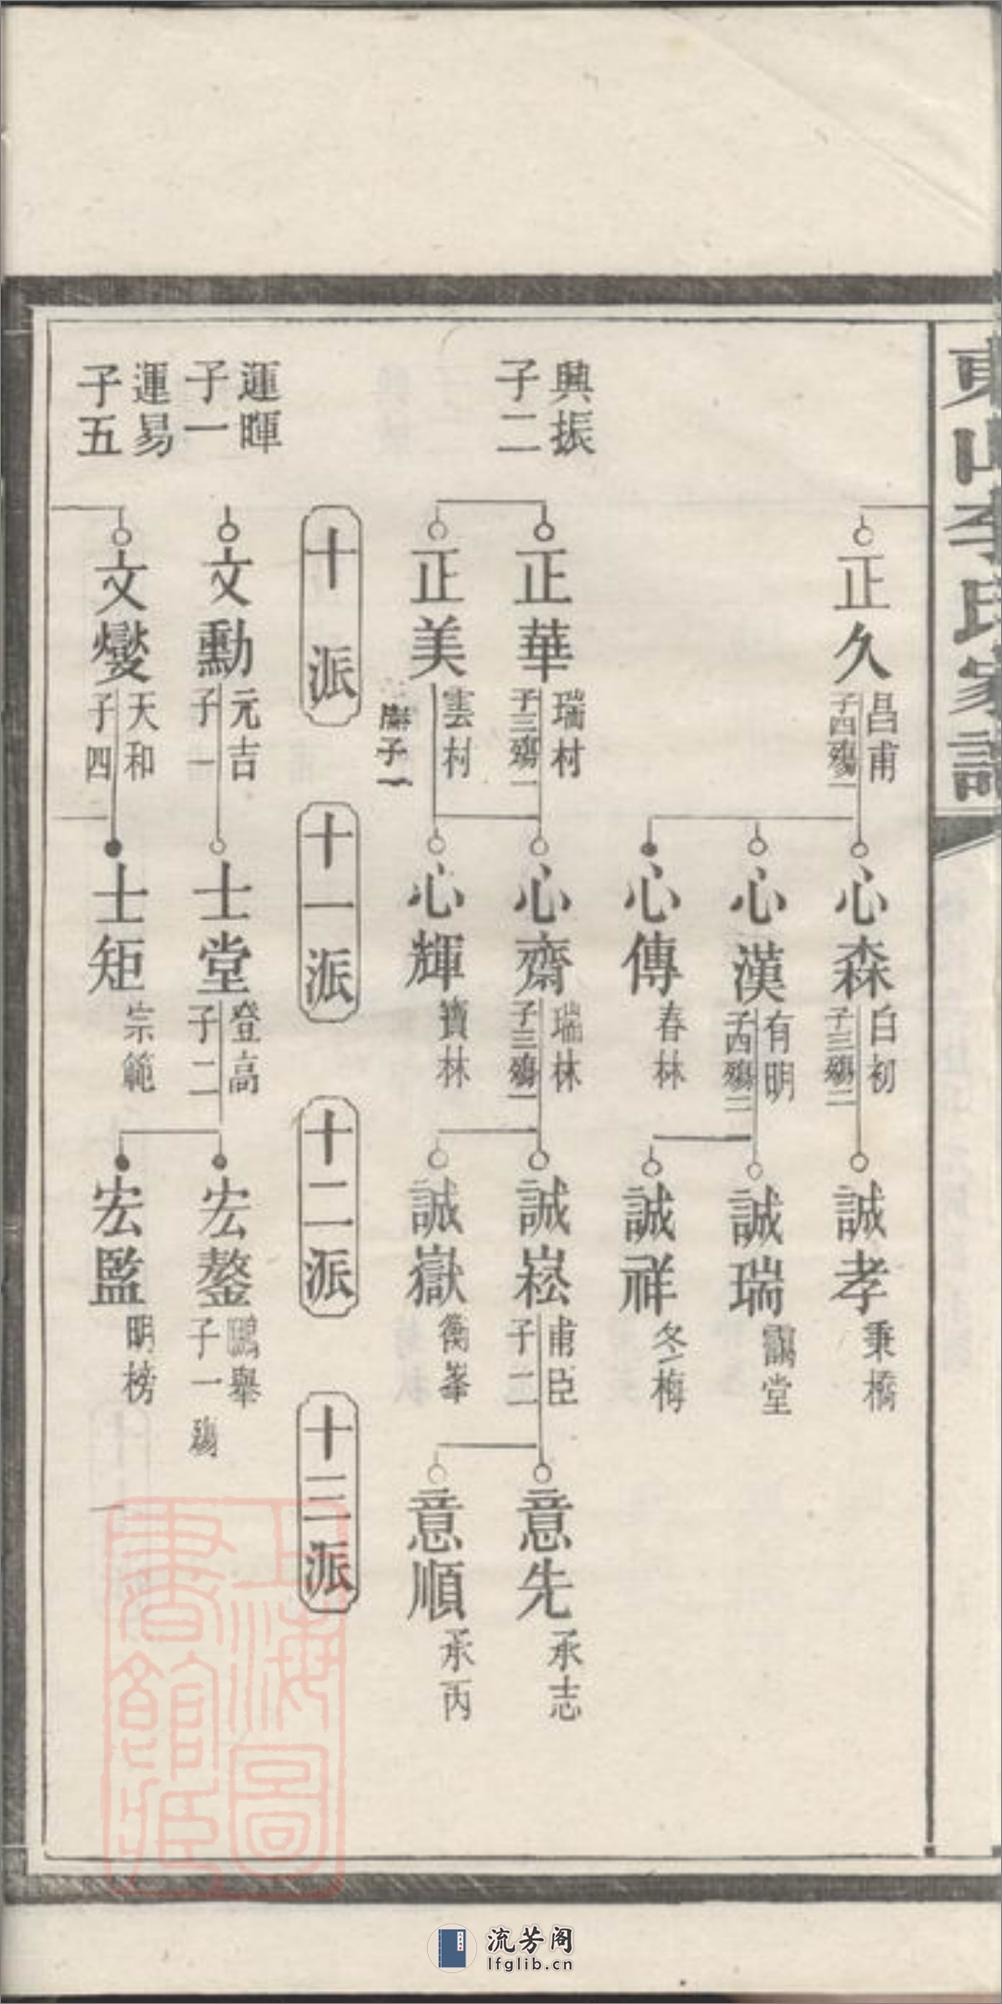 東山李氏家譜
正久
昌甫
子四殤一
心森
白初
子三殤二
誠孝
秉橋
心漢
有明
子四殤二
誠瑞
靄堂
心傳
春林
誠祥
冬梅
興振
子二
正華
瑞村
子三殤一
心齋
瑞林
子三殤一
誠崧
甫臣
子二
意先
承志
正美
雲村
子一
心輝
寶林
誠嶽
衡峯
意順
承丙
十派
十一派
十二派
十三派
運暉
子一
文勳
元吉
子一
士堂
登高
子二
宏鏊
鵬舉
子一殤
運易
子五
文燮
天和
子四
士矩
宗範
宏監
明榜
上海圖書館藏
流芳阁
lfglib.cn